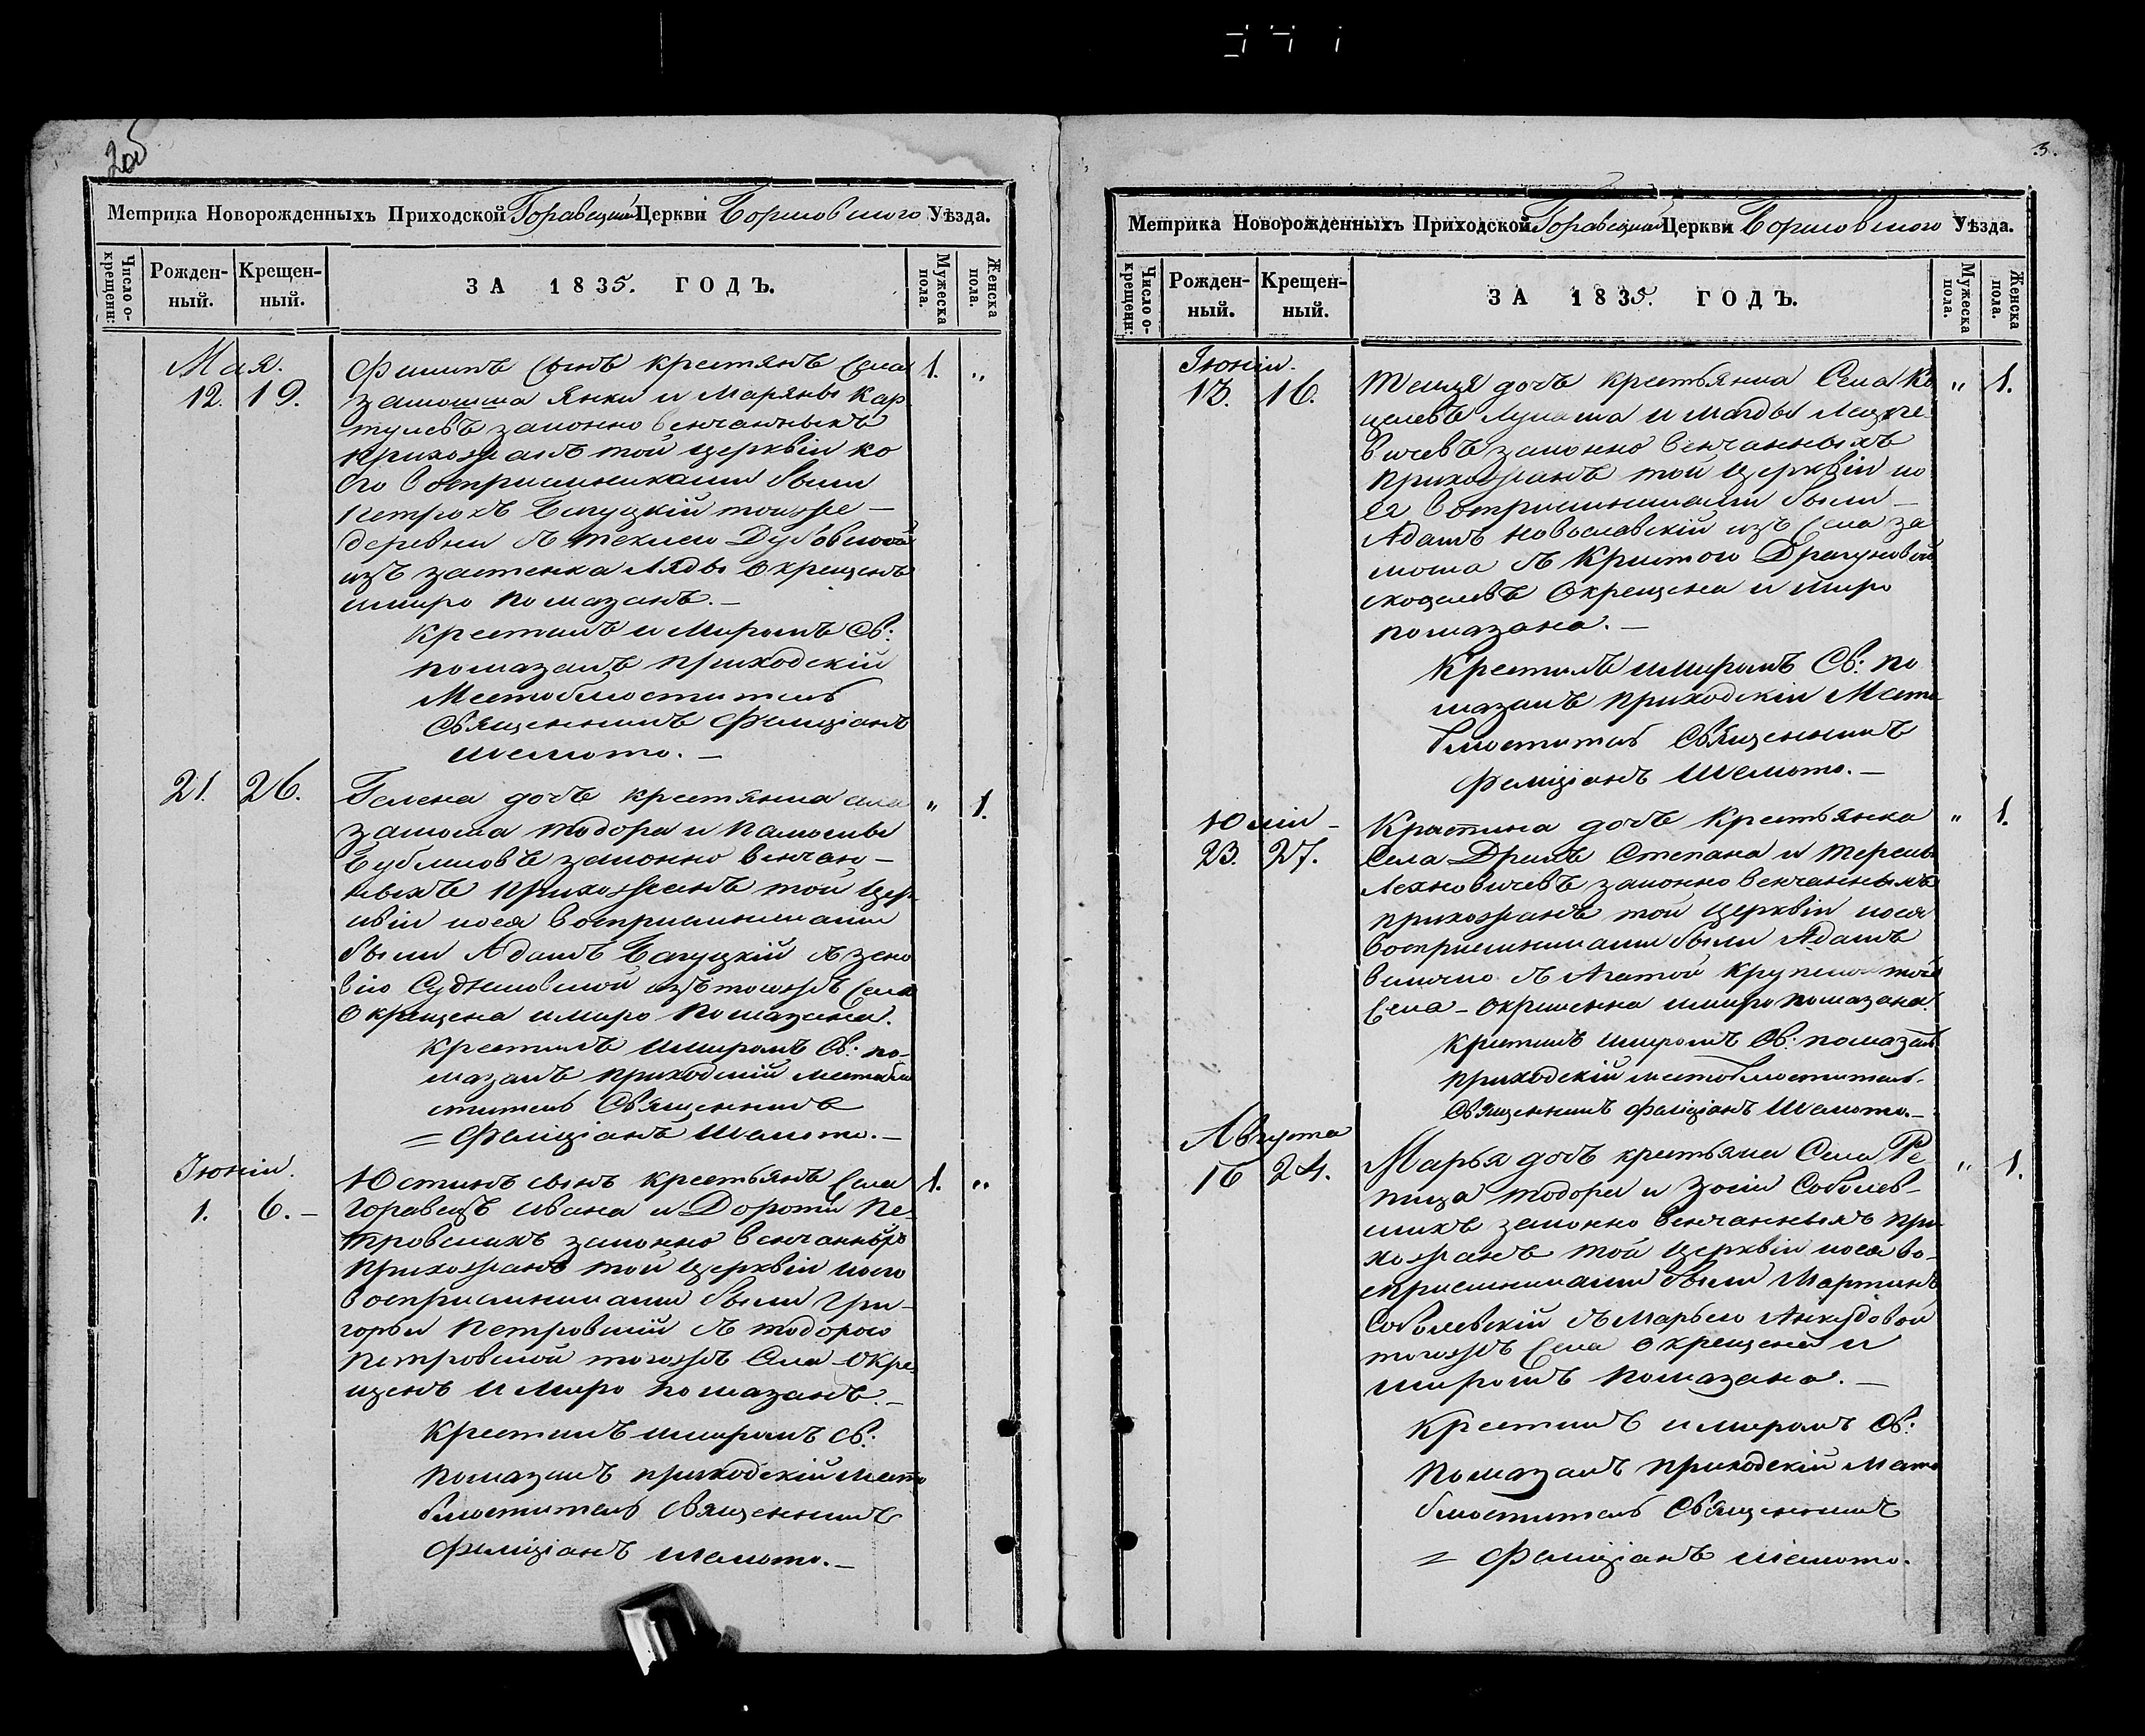 205
Метрика Новорожденныхъ Приходской Горавецкой Церкви Борисовского Уѣзда.
Число окрещени:
Рожденный.
Крещенный.
ЗА 1835. ГОДЪ.
Мужеска пола.
Женска пола.
Мая.
12. 19.
Филипъ сынъ крестянъ села 1. „
замошша Янки и Маряны Кар
тулевъ законно венчанныхъ
прихожанъ той церквіи ко
его восприемниками были
Петрохъ Багуцкій тоежже —
деревни съ Теклею Дубовской
изъ застенка Ляды окрещенъ
имиро помазанъ. —
Крестилъ и Миромъ Св:
помазалъ приходскій
Местоблюститель
Священникъ Фелиціанъ
Шелюто. —
21. 26.
Гелена дочъ крестянина села „ 1.
замоша Тодора и Паложы
законно венчан—
ныхъ прихожанъ той цер
квіи коея восприемниками
были Адамъ Багуцкій съ зено
вію изъ тогожъ села
Окрещена имиро Помазана.
Крестилъ имиромъ Св: по—
мазалъ приходскій местоблю
ститель Священникъ
= Фелиціанъ Шелюто. —
Іюнія.
1. 6. —
Юстинъ сынъ крестьянъ Села 1. „
Горавецъ Ивана и Дороти Пе—
тровскихъ законно венчанныхъ
прихожанъ той церквіи коего
восприемниками были Гри—
горы Петровскій съ Тодорою
Петровской тогожъ Села — Окре
щенъ и Миро помазанъ. —
Крестилъ имиромъ Св:
Помазалъ приходскій Место
блюститель Священникъ
Фелиціанъ Шелюто. —
3.
Метрика Новорожденныхъ Приходской Горавецкой Церкви Борисовского Уѣзда.
Число окрещени:
Рожденный.
Крещенный.
ЗА 1835. ГОДЪ.
Мужеска пола.
Женска пола.
Іюнія.
13. 16.
дочъ крестьянина Села Ко „ 1.
целевъ Лукаша и Магды
законно венчанныхъ
прихожанъ той церквіи ко
ея восприемниками были —
Адамъ Новославскій изъ села за
моша съ Драгуновой
окрещена и миро
помазана. —
Крестилъ имиромъ Св: по
мазалъ приходскій Место
блюститель Священникъ
Фелиціанъ Шелюто. —
Юлія —
23. 27.
Крыстина дочъ Крестьянина „ 1.
Села Степана и Тересы
Лехновичевъ законно венчанныхъ
прихожанъ той церквіи коея
восприемниками были Адамъ
съ Агатой той
села — окрещенна имиро помазана.
Крестилъ имиромъ Св: помазалъ
приходскій местоблюститель
Священникъ Фелиціанъ Шелюто. —
Августа
16 24.
Марья дочъ крестьянина Села Ре „ 1.
пища Тодора и Зосіи Соболев—
скихъ законно венчанныхъ при
хожанъ той церквіи коея во—
сприемниками были Мартинъ
Соболевскій съ Марьею Анкудовой
тогожъ села окрещена и
миромъ помазана. —
Крестилъ и миромъ Св:
Помазалъ приходскій Место
блюститель Священникъ
= Фелиціанъ Шелюто.